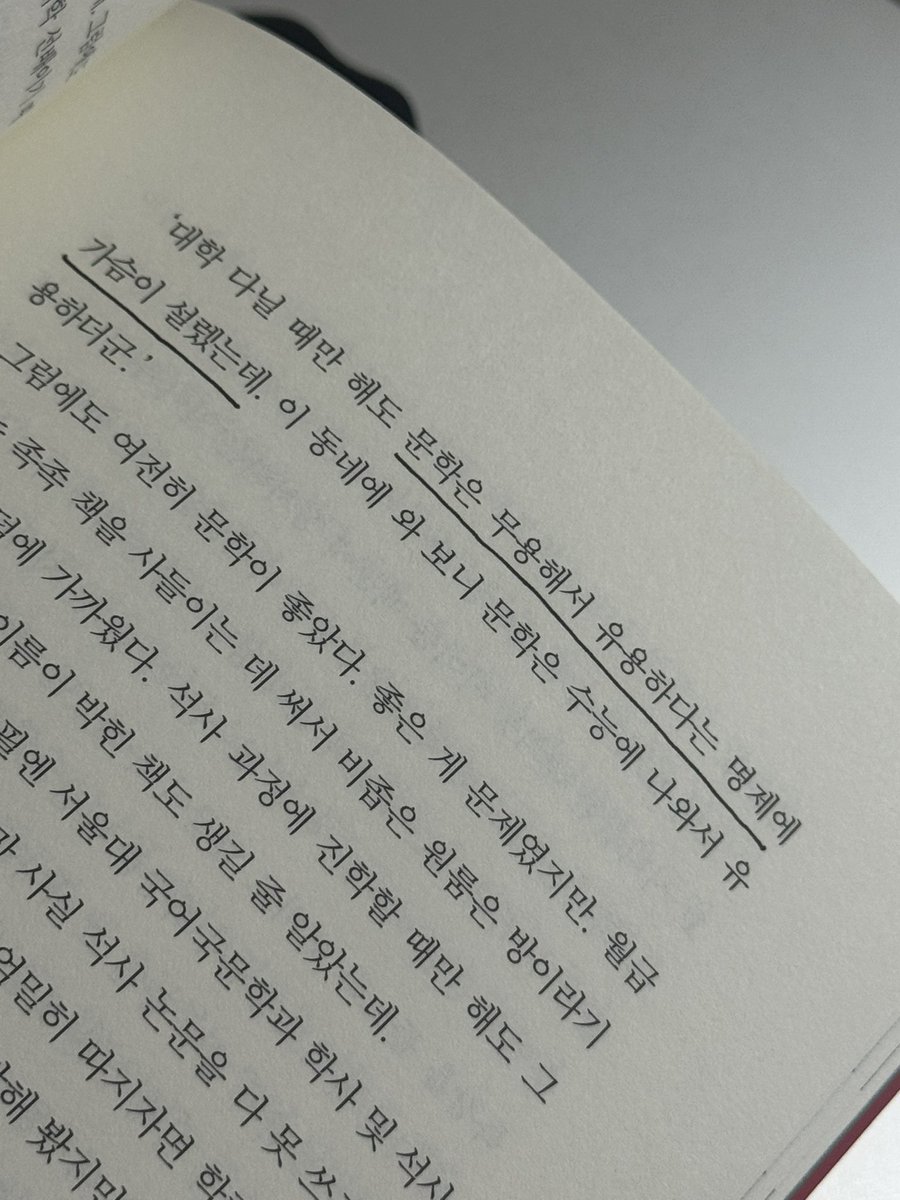 '대학 다닐 때만 해도 문학은 무용해서 유용하다는 명제에
가슴이 설렜는데. 이 동네에 와 보니 문학은 수능에 나와서 유
용하더군.'
그럼에도 여전히 문학이 좋았다. 좋은 게 문제였지만. 월급
족족 책을 사들이는 데 써서 비좁은 원룸은 방이라기
가까웠다. 석사 과정에 진학할 때만 해도 그
박힌 책도 생길 줄 알았는데.
서울대 국어국문학과 학사 및 석사
사실 석사 논문을 다 못
따지자면
봤지만